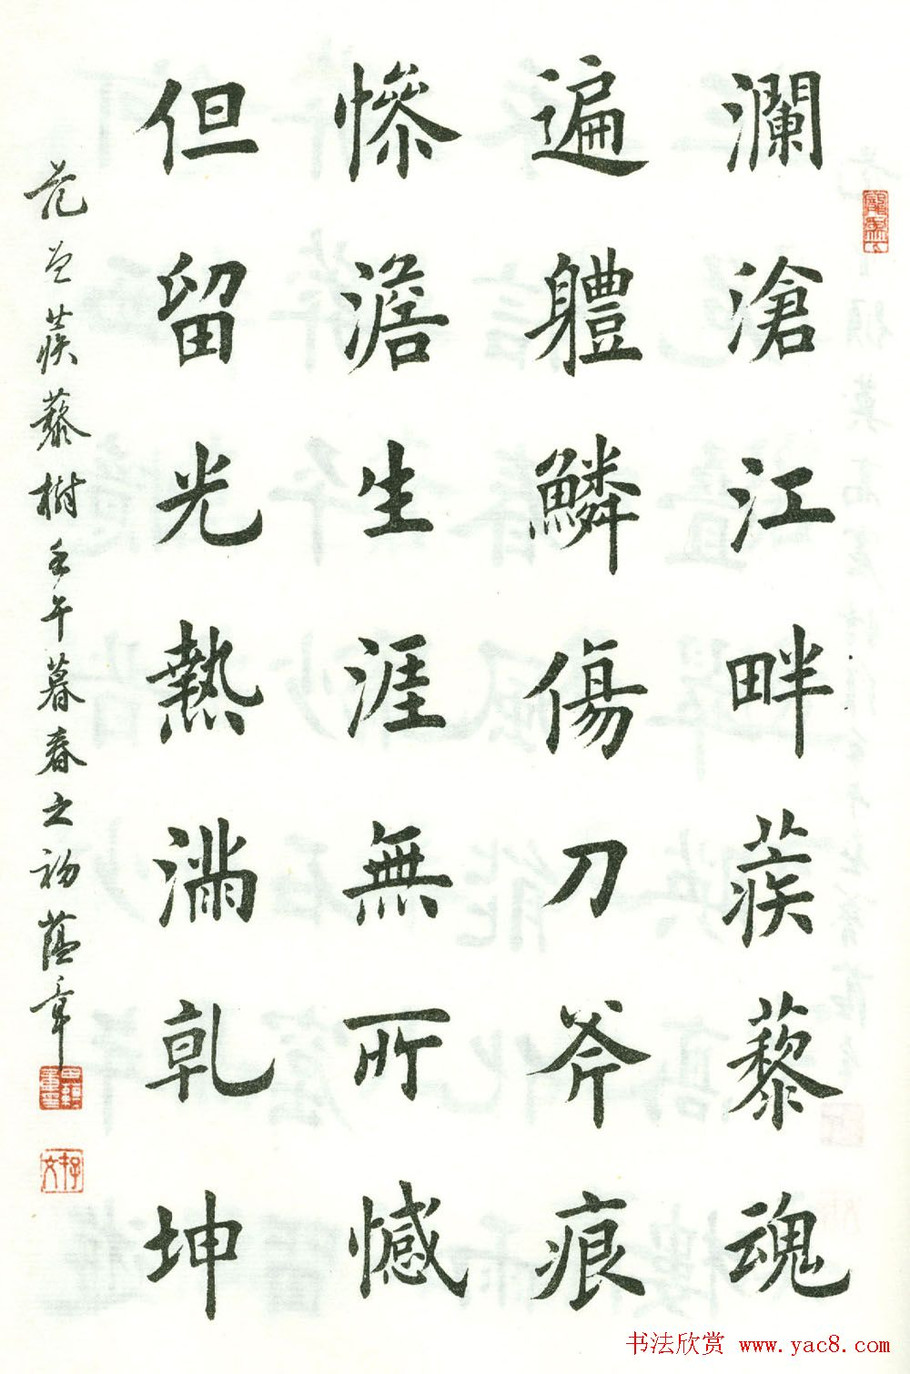 瀾滄江畔蒺藜魂
遍軆鱗傷刀斧痕
慘澹生涯無所憾
但留光熱滿乾坤
范曾蒺藜樹壬午暮春之初蕴章
书法欣赏 www.yac8.com